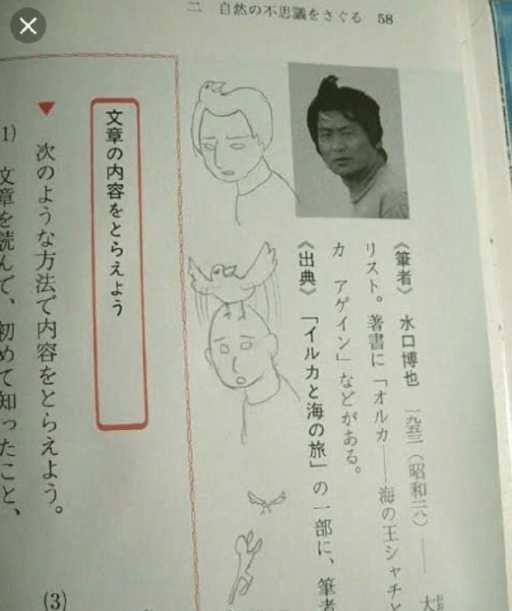 二 自然の不思議をさぐる 58
《筆者》 水口博也 一九五三(昭和二八)——
リスト。著書に「オルカ——海の王シャチと
カ アゲイン」などがある。
《出典》 「イルカと海の旅」の一部に、筆者
文章の内容をとらえよう
▼ 次のような方法で内容をとらえよう。
(3)
1) 文章を読んで、初めて知ったこと、